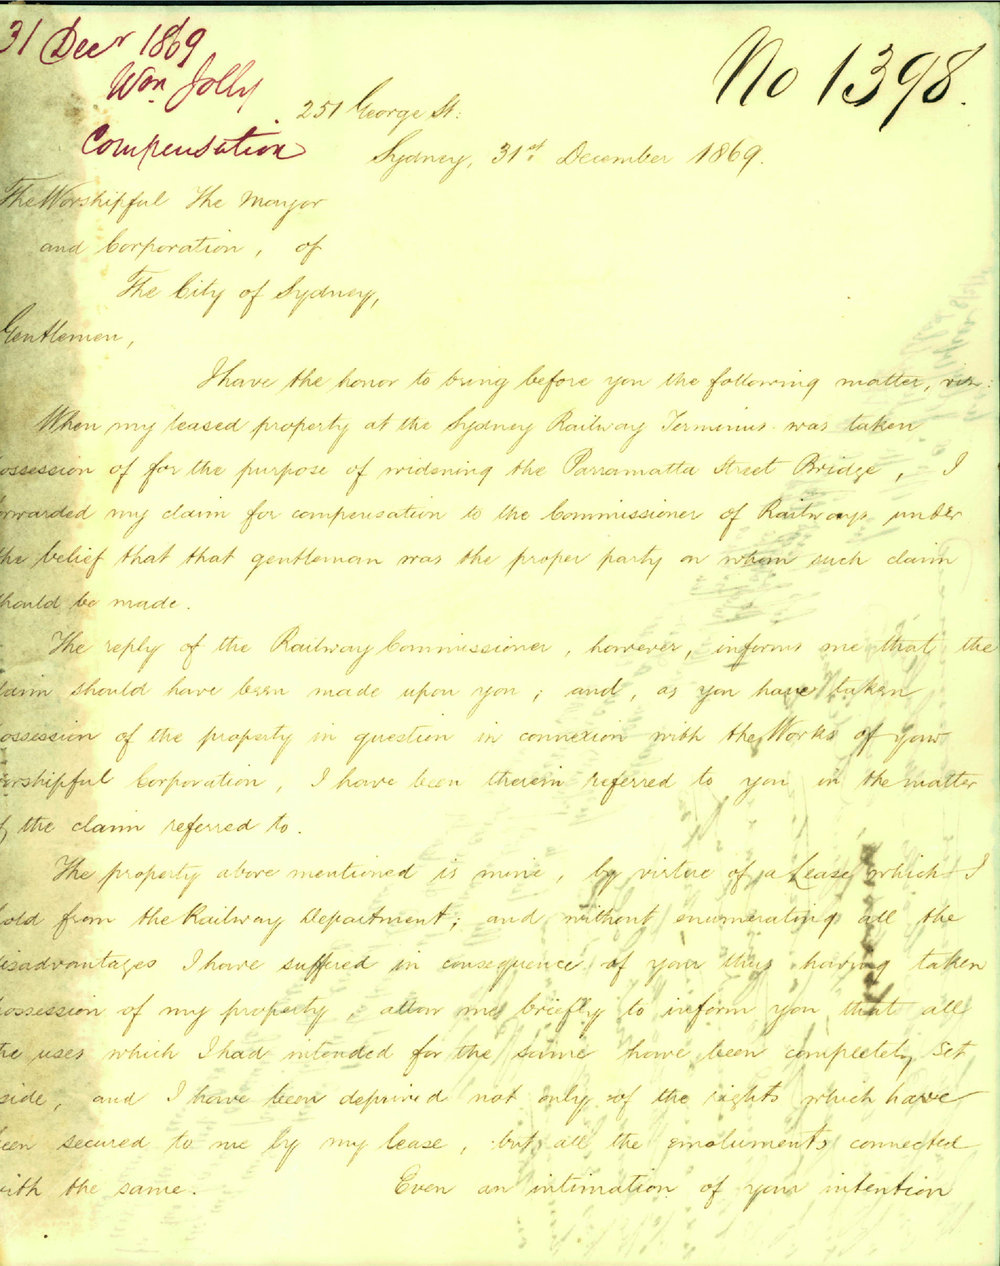 31 Decr 1869
Wm. Jolly
Compensation
No 1398.
251 George St:
Sydney, 31st December 1869.
The Worshipful The Mayor
and Corporation, of
The City of Sydney,
Gentlemen,
I have the honor to bring before you the following matter, viz:
When my leased property at the Sydney Railway Terminus was taken
ossession of for the purpose of widening the Parramatta Street Bridge, I
orwarded my claim for compensation to the Commissioner of Railways under
the belief that that gentleman was the proper party on whom such claim
should be made.
The reply of the Railway Commissioner, however, informs me that the
laim should have been made upon you; and, as you have taken
ossession of the property in question in connexion with the Works of your
orshipful Corporation, I have been therein referred to you in the matter
of the claim referred to.
The property above mentioned is mine, by virtue of a Lease which I
hold from the Railway Department; and without enumerating all the
isadvantages I have suffered in consequence of your thus having taken
ossession of my property, allow me briefly to inform you that all
the uses which I had intended for the same have been completely set
side, and I have been deprived not only of the rights which have
een secured to me by my lease, but all the emoluments connected
with the same. Even an intimation of your intention